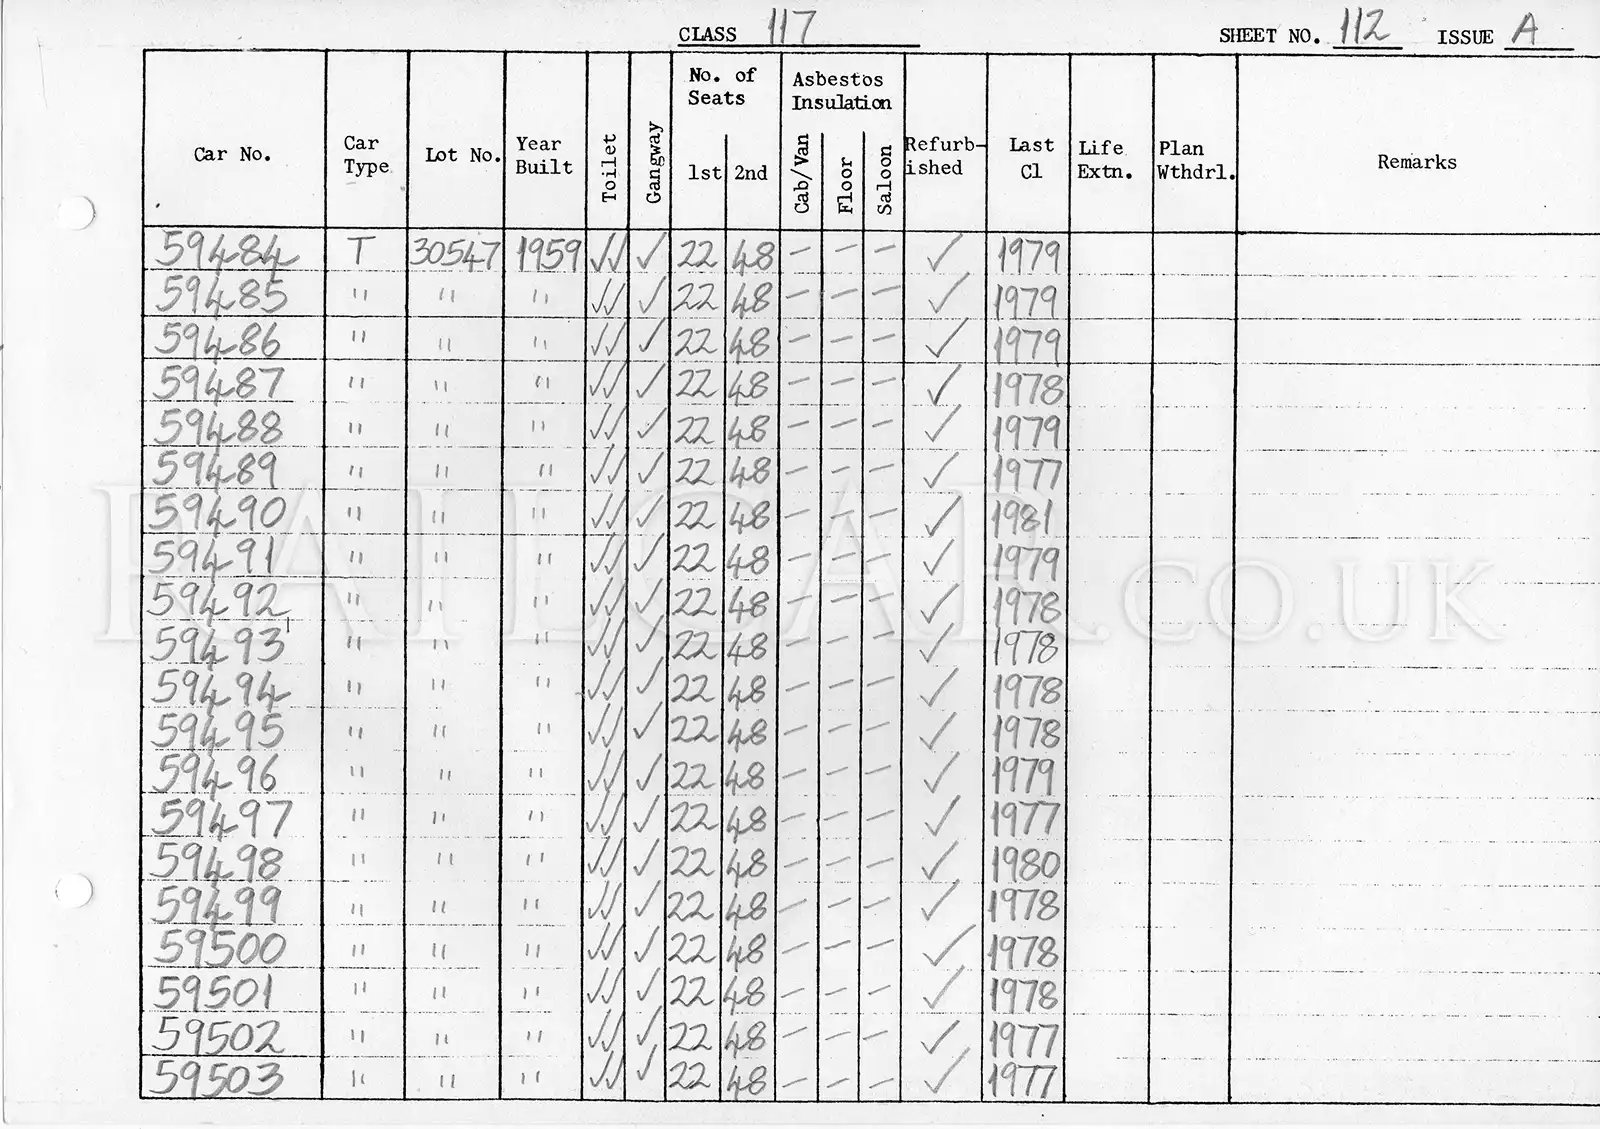 CLASS 117 SHEET NO. 112 ISSUE A
Car No. Car Type Lot No. Year Built Toilet Gangway No. of Seats 1st 2nd Asbestos Insulation Cab/Van Floor Saloon Refurb-ished Last Cl Life Extn. Plan Wthdrl. Remarks
59484 T 30547 1959 ✓✓ ✓ 22 48 — — — ✓ 1979
59485 " " " ✓✓ ✓ 22 48 — — — ✓ 1979
59486 " " " ✓✓ ✓ 22 48 — — — ✓ 1979
59487 " " " ✓✓ ✓ 22 48 — — — ✓ 1978
59488 " " " ✓✓ ✓ 22 48 — — — ✓ 1979
59489 " " " ✓✓ ✓ 22 48 — — — ✓ 1977
59490 " " " ✓✓ ✓ 22 48 — — — ✓ 1981
59491 " " " ✓✓ ✓ 22 48 — — — ✓ 1979
59492 " " " ✓✓ ✓ 22 48 — — — ✓ 1978
59493 " " " ✓✓ ✓ 22 48 — — — ✓ 1978
59494 " " " ✓✓ ✓ 22 48 — — — ✓ 1978
59495 " " " ✓✓ ✓ 22 48 — — — ✓ 1978
59496 " " " ✓✓ ✓ 22 48 — — — ✓ 1979
59497 " " " ✓✓ ✓ 22 48 — — — ✓ 1977
59498 " " " ✓✓ ✓ 22 48 — — — ✓ 1980
59499 " " " ✓✓ ✓ 22 48 — — — ✓ 1978
59500 " " " ✓✓ ✓ 22 48 — — — ✓ 1978
59501 " " " ✓✓ ✓ 22 48 — — — ✓ 1978
59502 " " " ✓✓ ✓ 22 48 — — — ✓ 1977
59503 " " " ✓✓ ✓ 22 48 — — — ✓ 1977
RAILCAR.CO.UK